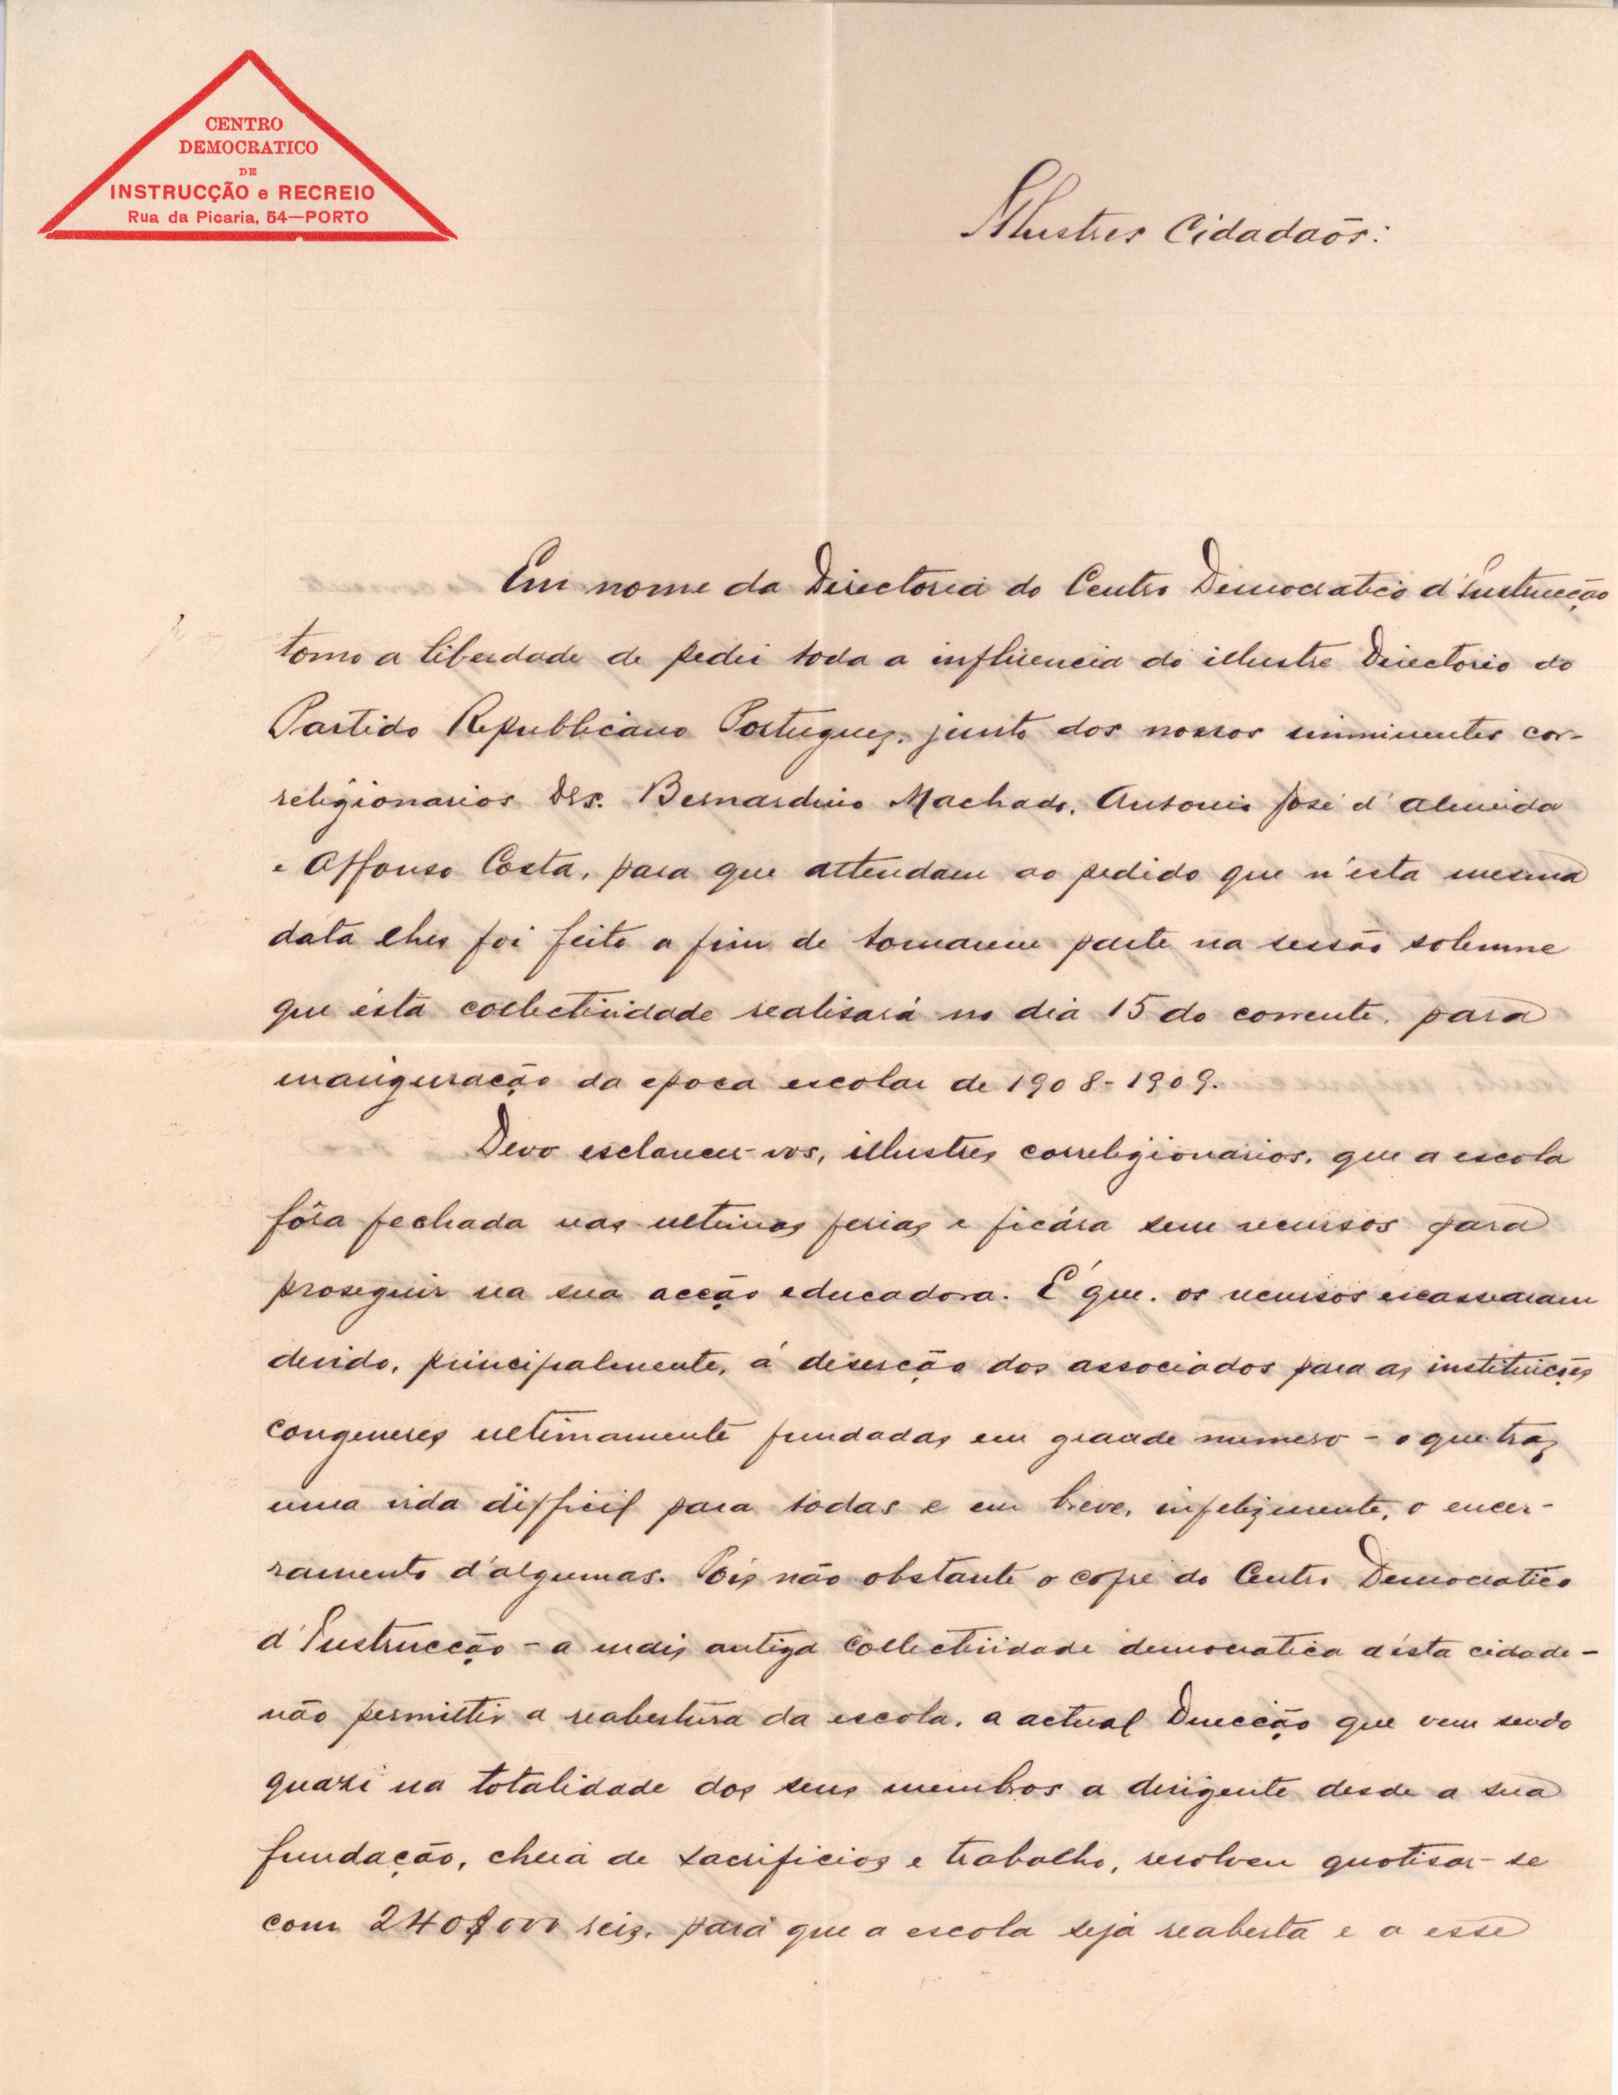 CENTRO
DEMOCRATICO
DE
INSTRUCÇÃO e RECREIO
Rua da Picaria, 54—PORTO
Illustres Cidadaõs:
Em nome da Directoria do Centro Democratico d'Instrucção
tomo a liberdade de pedir toda a influencia do illustre Directorio do
Partido Republicano Portuguez, junto dos nossos imminentes cor-
religionarios Drs. Bernardino Machado, Antonio José d'Almeida
e Affonso Costa, para que attendam ao pedido que n'ésta mesma
data lhes foi feito a fim de tomarem parte na sessão solemne
que ésta collectividade realisará no dia 15 do corrente, para
inauguração da epoca escolar de 1908-1909.
Devo esclarecer-vos, illustres correligionarios, que a escola
fôra fechada nas ultimas ferias e ficára sem recursos para
proseguir na sua acção educadora. É que, os recursos escassearam
devido, principalmente, á deserção dos associados para as instituições
congeneres ultimamente fundadas em grande numero - o que traz
uma vida difficil para todas e em breve, infelizmente, o encer-
ramento d'algumas. Pois não obstante o cofre do Centro Democratico
d'Instrucção - a mais antiga collectividade democratica d'ésta cidade -
não permittir a reabertura da escola, a actual Direcção que vem sendo
quazi na totalidade dos seus membros a dirigente desde a sua
fundação, cheia de sacrificios e trabalho, resolveu quotisar-se
com 240$000 reis, para que a escola seja reaberta e a esse